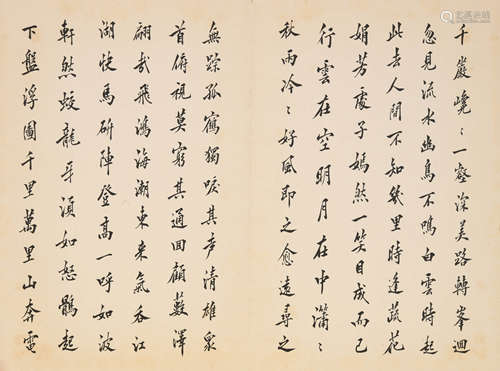 千巖巉〻一壑深美路轉峯迴
忽見流水幽鳥不鳴白雲時起
此去人間不知幾里時逢蔬花
娟若處子嫣然一笑目成而已
行雲在空明月在中瀟〻
秋雨冷〻好風即之愈遠尋之
無蹤孤鶴獨唳其聲清雄衆
首俯視莫窮其通回顧藪澤
翩哉飛鴻海潮東來氣吞江
湖快馬斫陣登高一呼如波
軒然蛟龍牙須如怒鶻起
下盤浮圖千里萬里山奔電